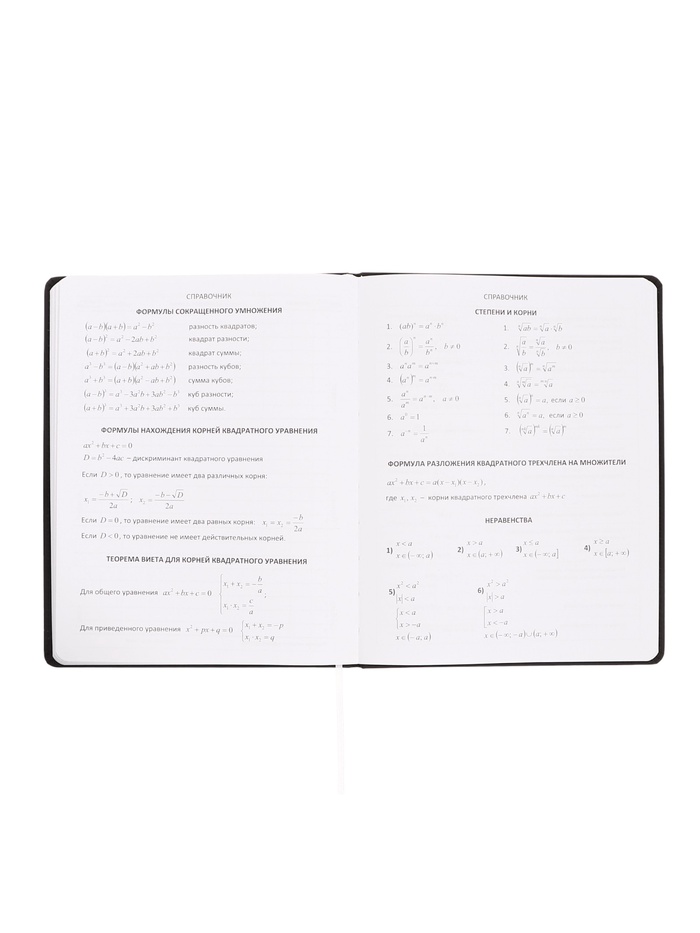 СПРАВОЧНИК
ФОРМУЛЫ СОКРАЩЕННОГО УМНОЖЕНИЯ
(a−b)(a+b)=a²−b² разность квадратов;
(a−b)²=a²−2ab+b² квадрат разности;
(a+b)²=a²+2ab+b² квадрат суммы;
a³−b³=(a−b)(a²+ab+b²) разность кубов;
a³+b³=(a+b)(a²−ab+b²) сумма кубов;
(a−b)³=a³−3a²b+3ab²−b³ куб разности;
(a+b)³=a³+3a²b+3ab²+b³ куб суммы.
ФОРМУЛЫ НАХОЖДЕНИЯ КОРНЕЙ КВАДРАТНОГО УРАВНЕНИЯ
ax²+bx+c=0
D=b²−4ac − дискриминант квадратного уравнения
Если D>0, то уравнение имеет два различных корня:
x₁=(−b+√D)/2a; x₂=(−b−√D)/2a
Если D=0, то уравнение имеет два равных корня: x₁=x₂=−b/2a
Если D<0, то уравнение не имеет действительных корней.
ТЕОРЕМА ВИЕТА ДЛЯ КОРНЕЙ КВАДРАТНОГО УРАВНЕНИЯ
Для общего уравнения ax²+bx+c=0 {x₁+x₂=−b/a; x₁·x₂=c/a
Для приведенного уравнения x²+px+q=0 {x₁+x₂=−p
x₁·x₂=q
СПРАВОЧНИК
СТЕПЕНИ И КОРНИ
1. (ab)ⁿ=aⁿ·bⁿ
2. (a/b)ⁿ=aⁿ/bⁿ, b≠0
3. aⁿaᵐ=aⁿ⁺ᵐ
4. (aⁿ)ᵐ=aⁿᵐ
5. aⁿ/aᵐ=aⁿ⁻ᵐ, a≠0
6. a⁰=1
7. a⁻ⁿ=1/aⁿ
1. ⁿ√ab=ⁿ√a·ⁿ√b
2. ⁿ√(a/b)=ⁿ√a/ⁿ√b, b≠0
3.
4.
5. (ⁿ√a)ⁿ=a, если a≥0
6. ⁿ√aⁿ=a, если a≥0
7.
ФОРМУЛА РАЗЛОЖЕНИЯ КВАДРАТНОГО ТРЕХЧЛЕНА НА МНОЖИТЕЛИ
ax²+bx+c=a(x−x₁)(x−x₂),
где x₁,x₂ − корни квадратного трехчлена ax²+bx+c
НЕРАВЕНСТВА
1) x<a
x∈(−∞;a)
2) x>a
x∈(a;+∞)
3) x≤a
x∈(−∞;a]
4) x≥a
x∈[a;+∞)
5) x²<a²
|x|<a
{x<a
x>−a
x∈(−a;a)
6) x²>a²
|x|>a
[x>a
x<−a
x∈(−∞;−a)∪(a;+∞)